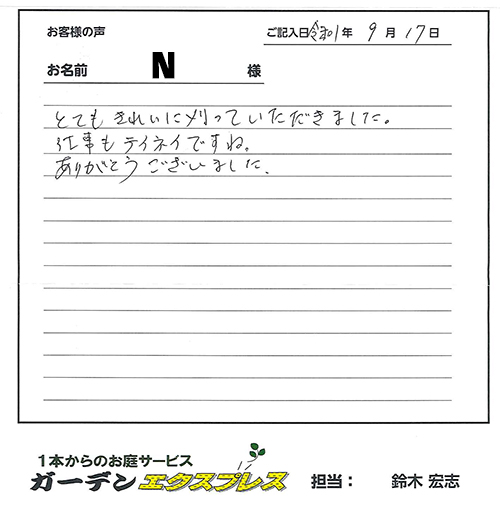 お客様の声
ご記入日 令和1年 9月17日
お名前 N 様
とてもきれいに刈っていただきました。
仕事もテイネイですね。
ありがとうございました。
1本からのお庭サービス
ガーデンエクスプレス 担当： 鈴木 宏志